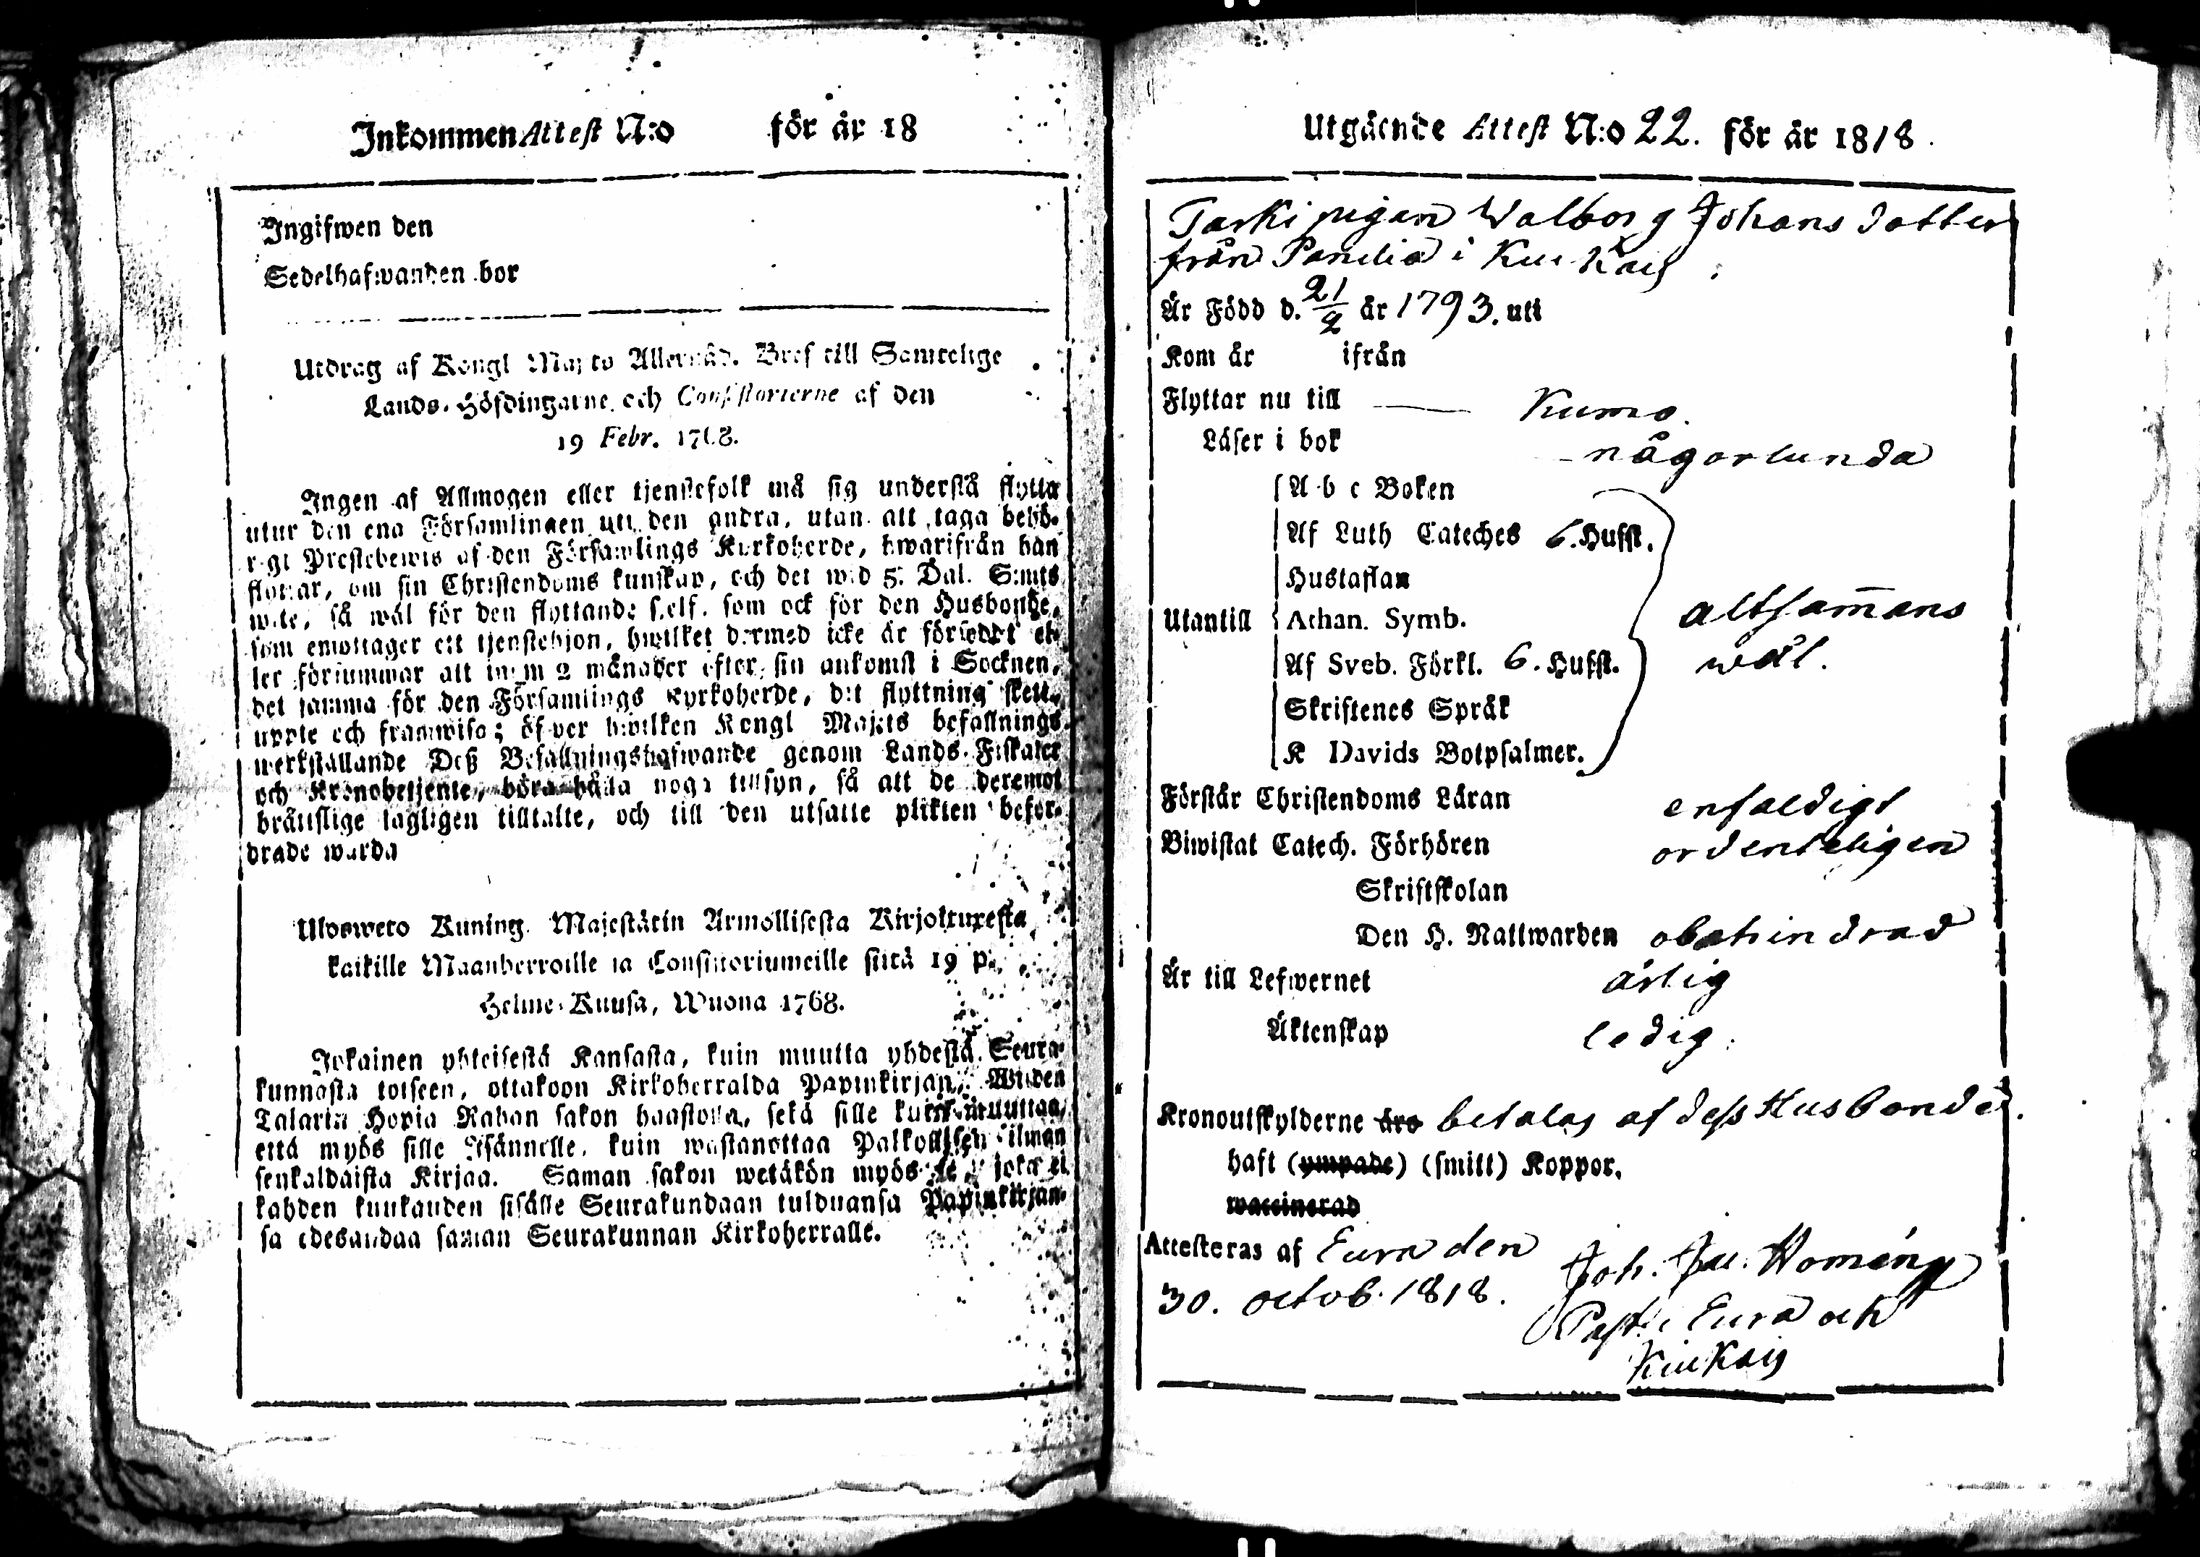 Inkommen Attest N:o för år 18
Ingifwen den
Sedelhafwanden bor
Utdrag af Kongl Maj:ts Allernåd. Bref till Samtelige
Lands-Höfdingarne och Consistorierne af den
19 Febr. 1768.
Ingen af Allmogen eller tjenstefolk må sig understå flytta
utur den ena Församlingen uti den andra, utan att taga behö-
rigt Prestebewis af den Församlings Kyrkoherde, hwarifrån han
flyttar, om sin Christendoms kunskap, och det wid 5. Dal. S:mts
wite, så wäl för den flyttande sjelf, som ock för den Husbonde,
som emottager ett tjenstehjon, hwilket dermed icke är försedt el-
ler försummar att inom 2 månader efter sin ankomst i Socknen,
det samma för den Församlings Kyrkoherde, dit flyttning skett,
uppte och framwisa; öfver hwilken Kongl Majets befallnings
werkställande Deß Befallningshafwande genom Lands-Fiskaler
och Kronobetjente, böra hålla noga tillsyn, så att de deremot
bråttslige lagligen tilltalte, och till den utsatte plikten befor-
drade warda
Ulosweto Kuning. Majestätin Armollisesta Kirjoituxesta
kaikille Maanherroille ja Consistoriumeille siitä 19 p.
Helme-Kuusa, Wuona 1768.
Jokainen yhteisestä Kansasta, kuin muutta yhdestä Seura-
kunnasta toiseen, ottakoon Kirkoherralda Papinkirjan, Wiiden
Talarin Hopia Rahan sakon haastolla, sekä sille kuin muuttaa,
että myös sille Isännelle, kuin wastanottaa Palkollisen ilman
senkaldaista Kirjaa. Saman sakon wetäkön myös se, joka ei
kahden kuukauden sisälle Seurakundaan tulduansa Papinkirjan-
sa edesandaa saman Seurakunnan Kirkoherralle.
Utgående Attest N:o 22. för år 1818.
Tarki pigan Walborg Johans dotter
från Panelia i Kiukais
Är Född d. 21/2 år 1793. uti
Kom år ifrån
Flyttar nu till Kumo.
Läser i bok någorlunda
A b c Boken
Af Luth Cateches 6. Hufst.
Hustaflan
Utantill Athan. Symb. altsam̄ans
Af Sveb. Förkl. 6. Hufst. wäl.
Skriftenes Språk
K Davids Botpsalmer.
Förstår Christendoms Läran enfaldigt
Biwistat Catech. Förhören ordenteligen
Skriftskolan
Den H. Nattwarden obehindrad
Är till Lefwernet ärlig
Äktenskap ledig.
Kronoutskylderne äro betalas af dess Husbonde.
haft (ympade) (smitt) Koppor.
waccinerad
Attesteras af Eura den
30. octob. 1818.
Joh.
Past. i Eura och
Kiukais